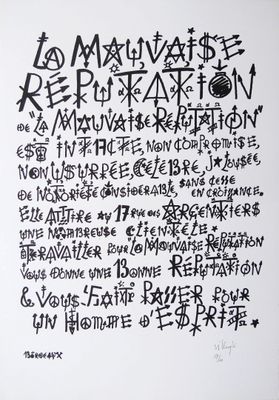 LA MAUVAISE
RÉPUTATION
DE "LA MAUVAISE RÉPUTATION"
EST INTACTE, NON COMPROMISE,
NON USURPÉE. CÉLÈBRE, JALOUSÉE,
DE NOTORIÉTÉ CONSIDÉRABLE, SANS CESSE
EN CROISSANCE.
ELLE ATTIRE AU 17 RUE DES ARGENTIERS
UNE NOMBREUSE CLIENTÈLE.
TRAVAILLER POUR LA MAUVAISE RÉPUTATION
VOUS DONNE UNE BONNE RÉPUTATION
& VOUS FAIT PASSER POUR
UN HOMME D'ESPRIT
BORDEAUX